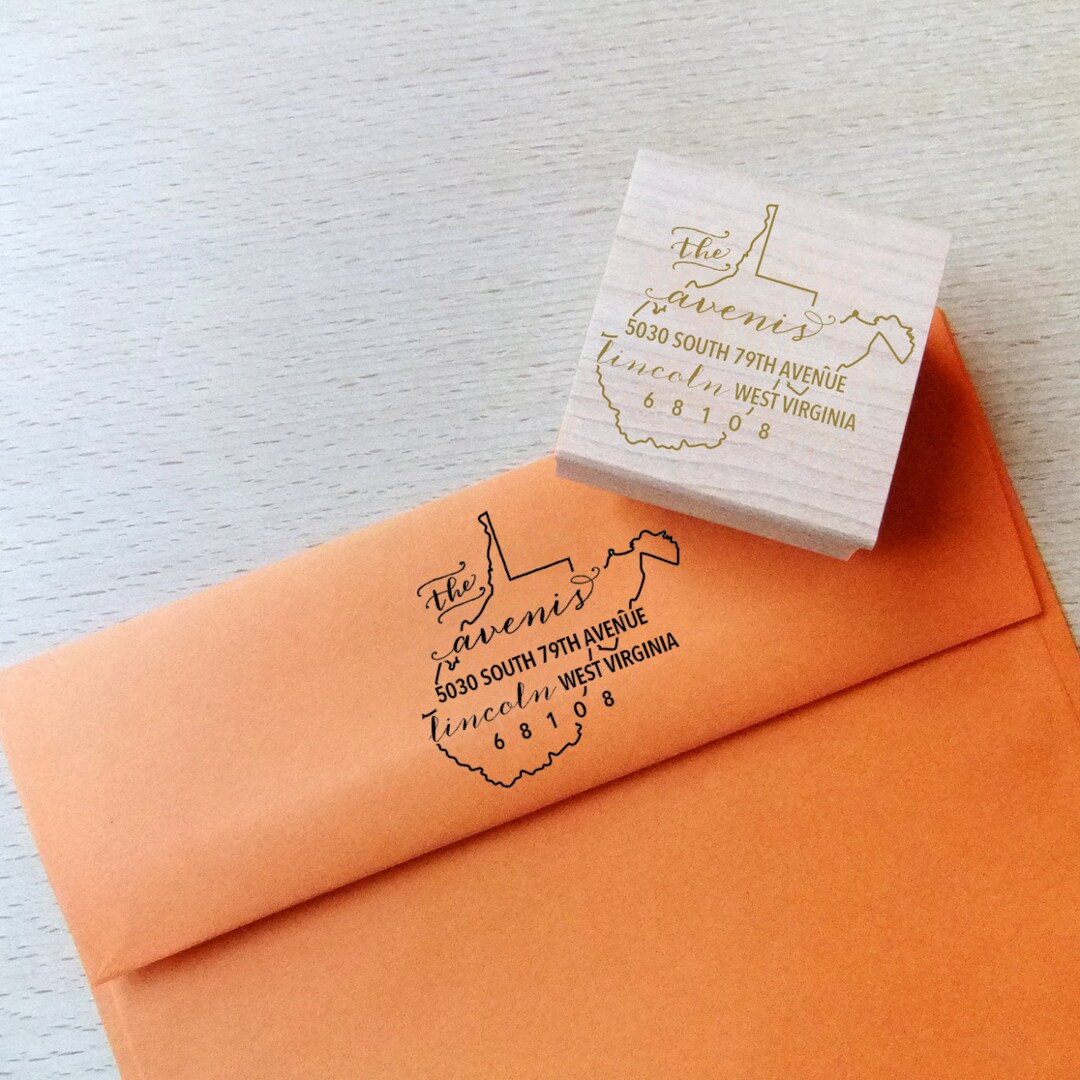 the
avenis
5030 SOUTH 79TH AVENUE
lincoln WEST VIRGINIA
68108
the
avenis
5030 SOUTH 79TH AVENUE
lincoln WEST VIRGINIA
68108